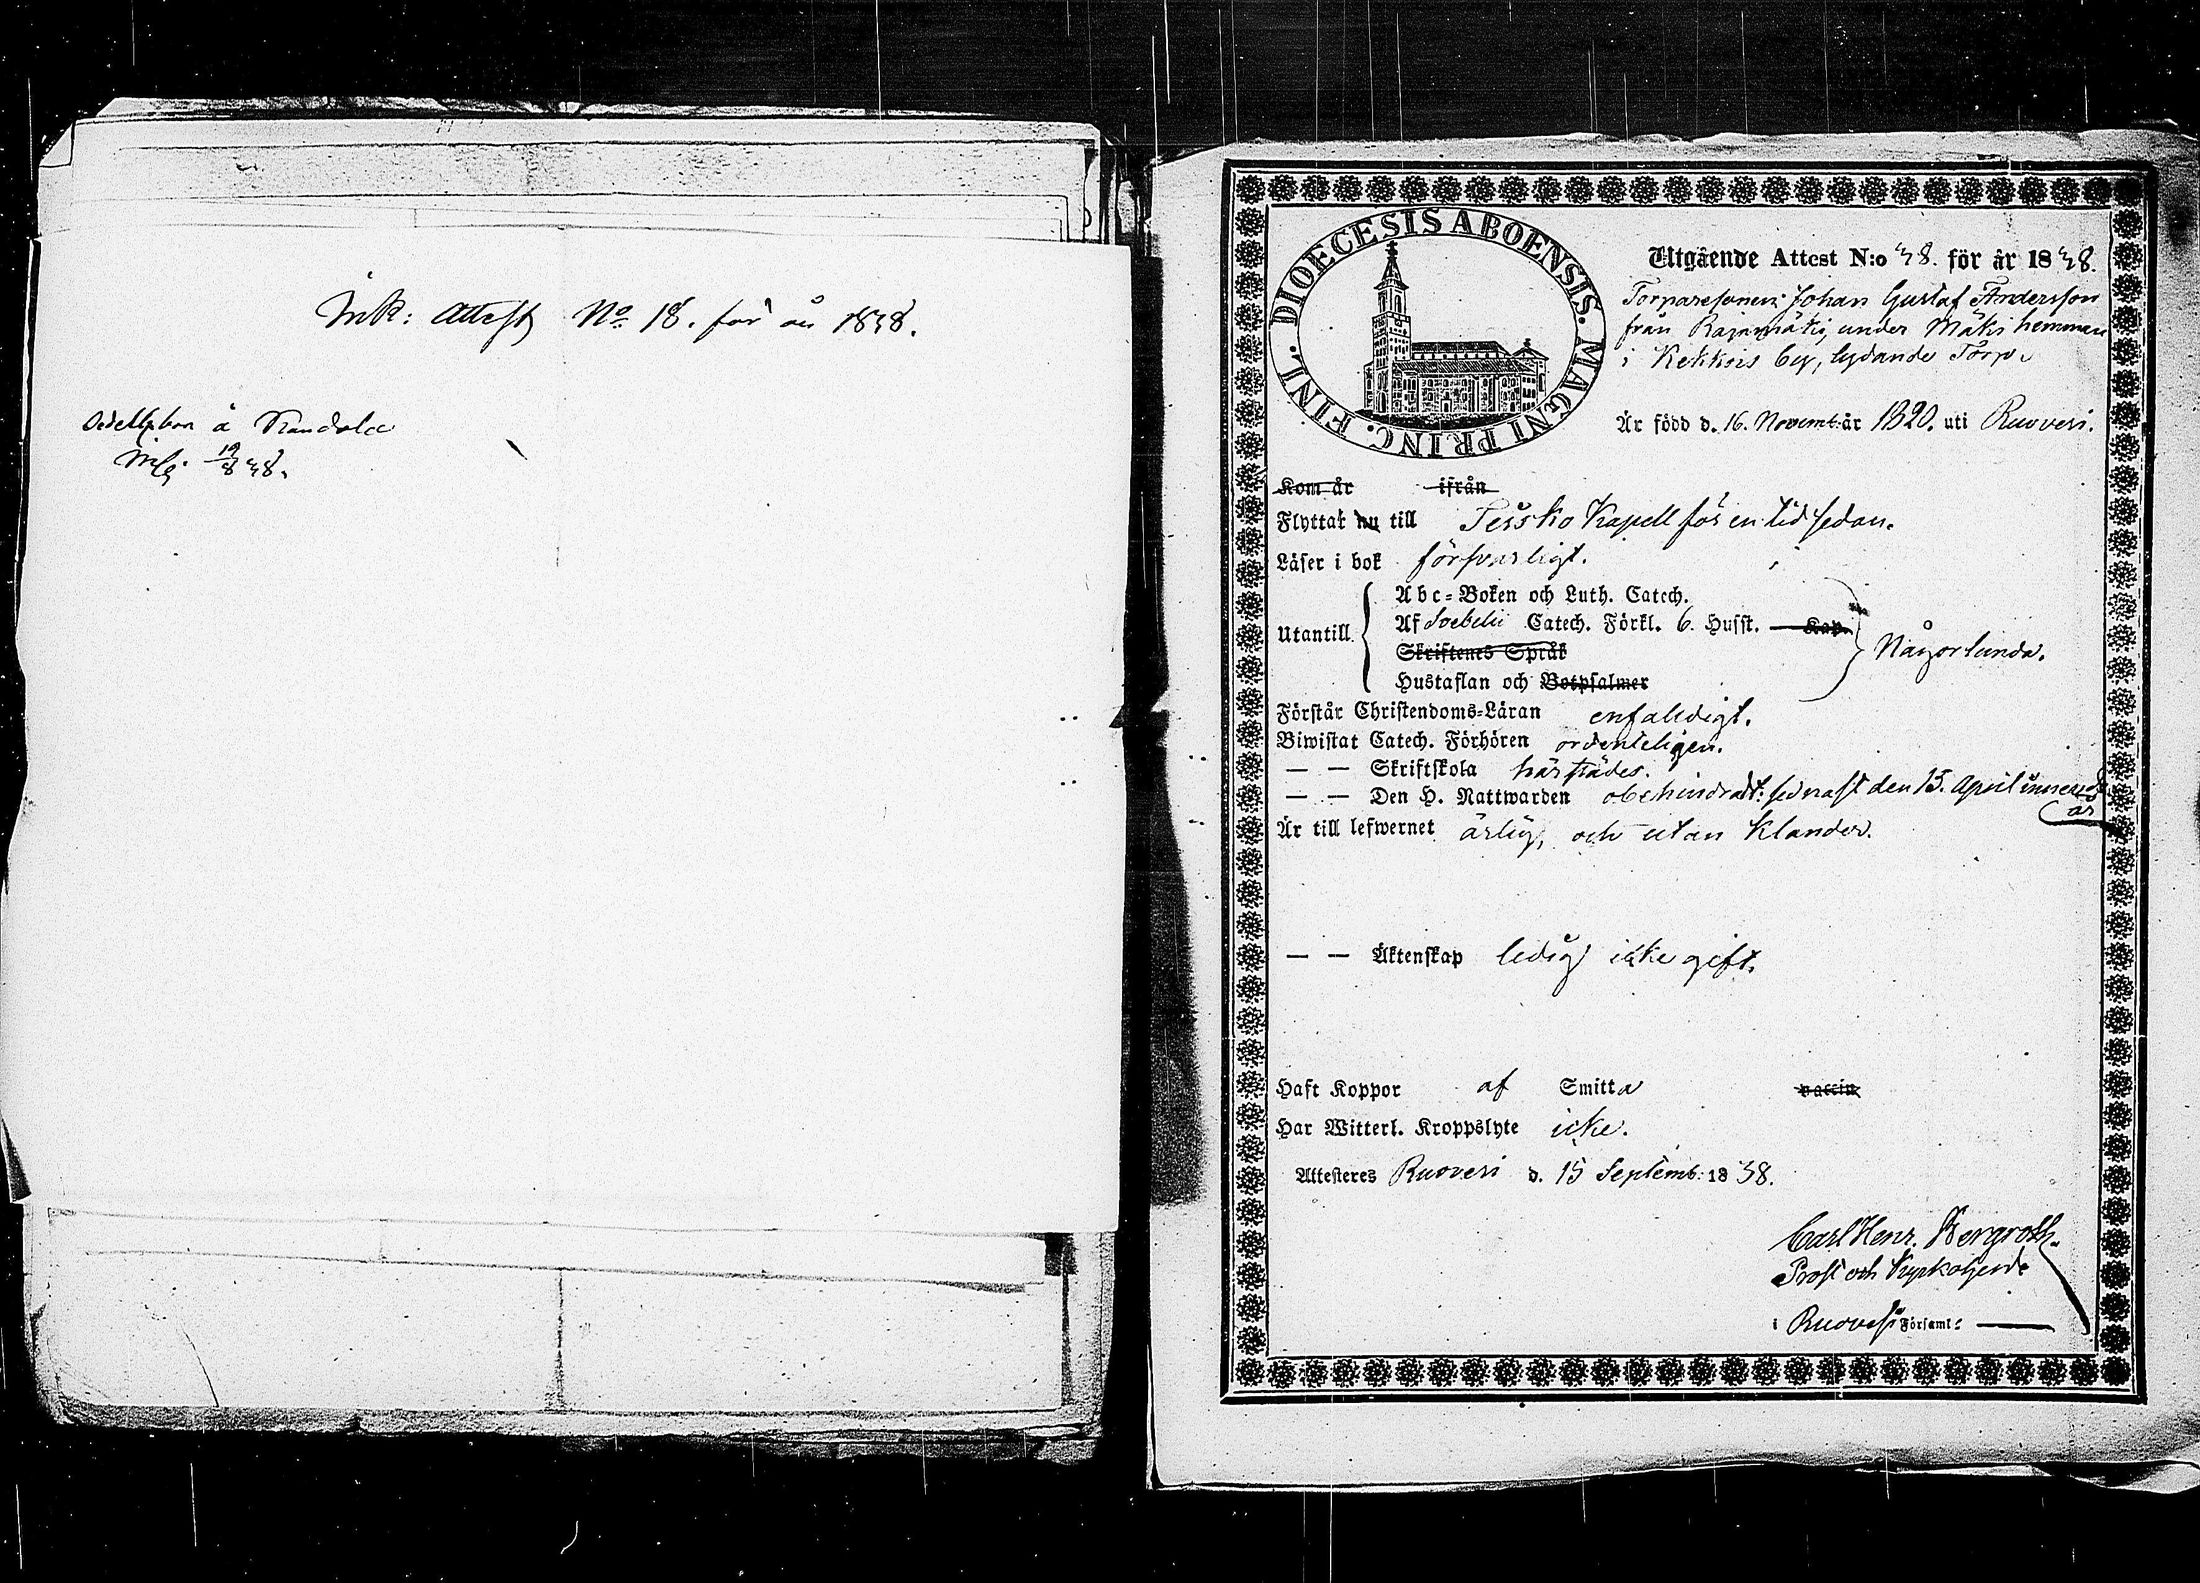 Ink: Attest No 18. för år 1838.
å Kandola
12/8 38.
DIOECESIS ABOENSIS. MAGNI PRINC. FINL.
Utgående Attest N:o 38. för år 1838.
Torparesonen Johan Gustaf Andersson
från Rajamäki, under Mäki hemman
i Kekkois by, lydande Torp.
Är född d. 16. Novemb. år 1820. uti Ruovesi.
Kom år ifrån
Flyttat nu till Kapell för en tid sedan.
Läser i bok försvarligt.
Utantill
Abc-Boken och Luth. Catech.
Af Svebelii Catech. Förkl. 6. Husst. Kap.
Skriftenes Språk
Hustaflan och Botpsalmer
Någorlunda.
Förstår Christendoms-Läran enfaldigt.
Biwistat Catech. Förhören ordenteligen.
— — Skriftskola härstädes.
— — Den H. Nattwarden obehindradt: sednast den 15. April innevarde
år
Är till lefwernet ärlig, och utan klander.
— — Äktenskap ledig icke gift.
Haft Koppor af Smitta vaccin
Har Witterl. Kroppslyte icke.
Attesteres Ruovesi d. 15 Septemb. 1838.
Carl Henr. Bergroth.
Prost och Kyrkoherde
i Ruovesi Församl: